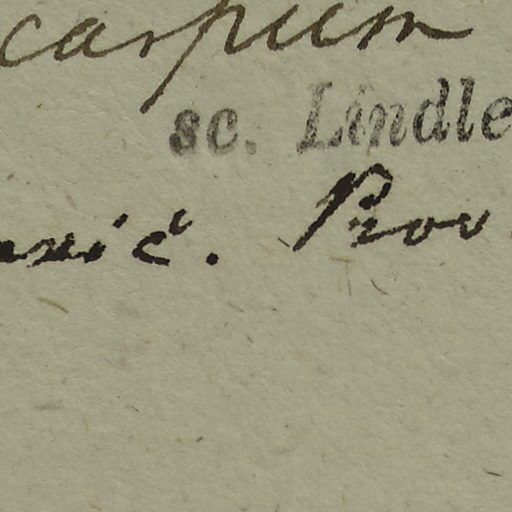 carpum
sc. Lindle
Prov.